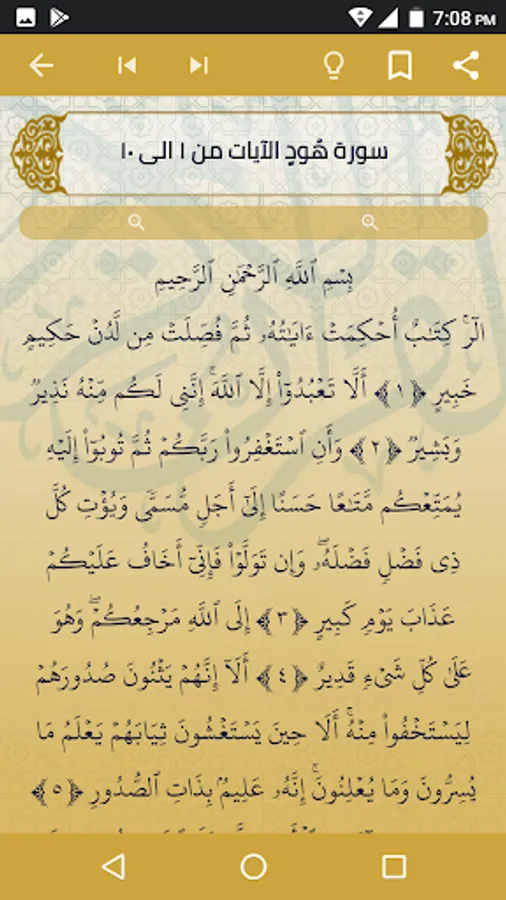 7:08 PM
سورة هُودٍ الآيات من ١ الى ١٠
بِسْمِ ٱللَّهِ ٱلرَّحْمَٰنِ ٱلرَّحِيمِ
الٓرۚ كِتَٰبٌ أُحْكِمَتْ ءَايَٰتُهُۥ ثُمَّ فُصِّلَتْ مِن لَّدُنْ حَكِيمٍ
خَبِيرٍ ﴿١﴾ أَلَّا تَعْبُدُوٓا۟ إِلَّا ٱللَّهَۚ إِنَّنِى لَكُم مِّنْهُ نَذِيرٌ
وَبَشِيرٌ ﴿٢﴾ وَأَنِ ٱسْتَغْفِرُوا۟ رَبَّكُمْ ثُمَّ تُوبُوٓا۟ إِلَيْهِ
يُمَتِّعْكُم مَّتَٰعًا حَسَنًا إِلَىٰٓ أَجَلٍ مُّسَمًّى وَيُؤْتِ كُلَّ
ذِى فَضْلٍ فَضْلَهُۥۖ وَإِن تَوَلَّوْا۟ فَإِنِّىٓ أَخَافُ عَلَيْكُمْ
عَذَابَ يَوْمٍ كَبِيرٍ ﴿٣﴾ إِلَى ٱللَّهِ مَرْجِعُكُمْۖ وَهُوَ
عَلَىٰ كُلِّ شَىْءٍ قَدِيرٌ ﴿٤﴾ أَلَآ إِنَّهُمْ يَثْنُونَ صُدُورَهُمْ
لِيَسْتَخْفُوا۟ مِنْهُۚ أَلَا حِينَ يَسْتَغْشُونَ ثِيَابَهُمْ يَعْلَمُ مَا
يُسِرُّونَ وَمَا يُعْلِنُونَۚ إِنَّهُۥ عَلِيمٌۢ بِذَاتِ ٱلصُّدُورِ ﴿٥﴾